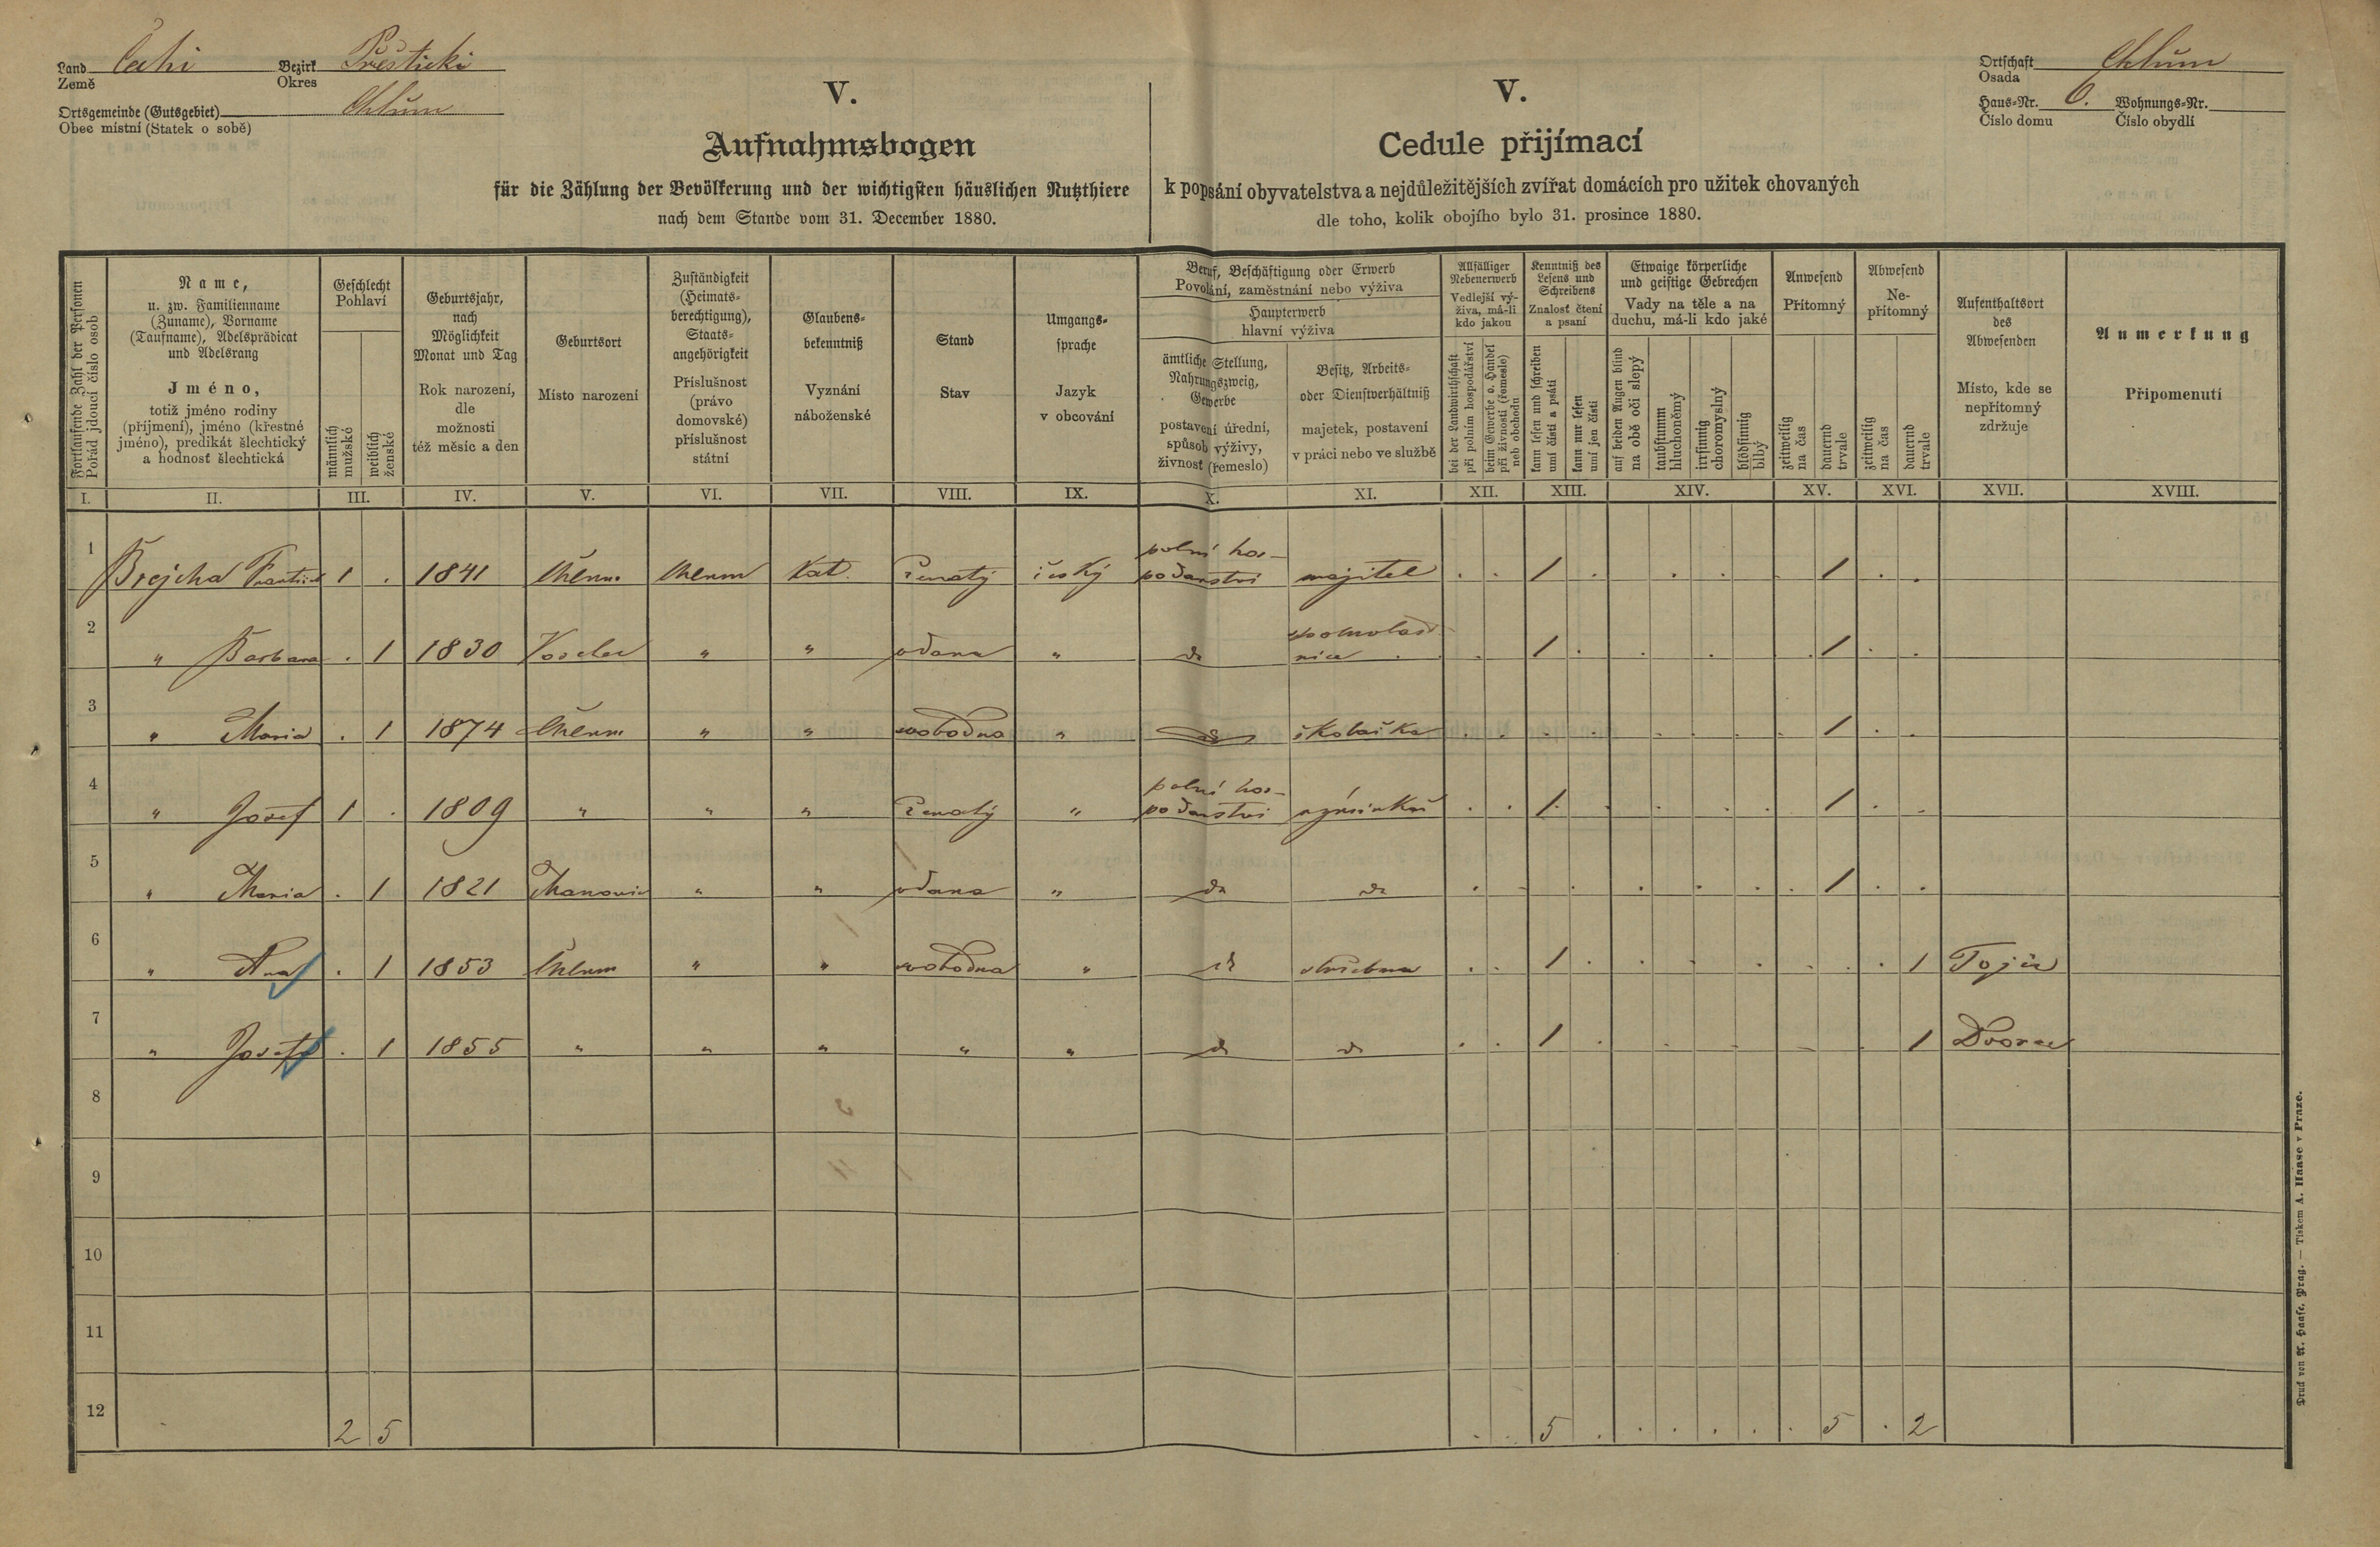 Land Čechi Bezirk Přesticki
Země Okres
Ortsgemeinde (Gutsgebiet) Chlum
Obec místní (Statek o sobě)
V.
Aufnahmsbogen
für die Zählung der Bevölkerung und der wichtigsten häuslichen Nutzthiere
nach dem Stande vom 31. December 1880.
V.
Cedule přijímací
k popsání obyvatelstva a nejdůležitějších zvířat domácích pro užitek chovaných
dle toho, kolik obojího bylo 31. prosince 1880.
Ortschaft Chlum
Osada
Haus-Nr. 6. Wohnungs-Nr.
Číslo domu Číslo obydlí
Fortlaufende Zahl der Personen
Pořád jdoucí číslo osob
Name,
u. zw. Familienname
(Zuname), Vorname
(Taufname), Adelsprädicat
und Adelsrang
Jméno,
totiž jméno rodiny
(příjmení), jméno (křestné
jméno), predikát šlechtický
a hodnost šlechtická
Geschlecht
Pohlaví
männlich
mužské
weiblich
ženské
Geburtsjahr,
nach
Möglichkeit
Monat und Tag
Rok narození,
dle
možnosti
též měsíc a den
Geburtsort
Místo narození
Zuständigkeit
(Heimats-
berechtigung),
Staats-
angehörigkeit
Příslušnost
(právo
domovské)
příslušnost
státní
Glaubens-
bekenntniß
Vyznání
náboženské
Stand
Stav
Umgangs-
sprache
Jazyk
v obcování
Beruf, Beschäftigung oder Erwerb
Povolání, zaměstnání nebo výživa
Haupterwerb
hlavní výživa
ämtliche Stellung,
Nahrungszweig,
Gewerbe
postavení úřední,
spůsob výživy,
živnost (řemeslo)
Besitz, Arbeits-
oder Dienstverhältniß
majetek, postavení
v práci nebo ve službě
Allfälliger
Nebenerwerb
Vedlejší vý-
živa, má-li
kdo jakou
bei der Landwirthschaft
při polním hospodářství
beim Gewerbe o. Handel
při živnosti (řemesle)
neb obchodu
Kenntniß des
Lesens und
Schreibens
Znalost čtení
a psaní
kann lesen und schreiben
umí čísti a psáti
kann nur lesen
umí jen čísti
Etwaige körperliche
und geistige Gebrechen
Vady na těle a na
duchu, má-li kdo jaké
auf beiden Augen blind
na obě oči slepý
taubstumm
hluchoněmý
irrsinnig
choromyslný
blödsinnig
blbý
Anwesend
Přítomný
zeitweilig
na čas
dauernd
trvale
Abwesend
Ne-
přítomný
zeitweilig
na čas
dauernd
trvale
Aufenthaltsort
des
Abwesenden
Místo, kde se
nepřítomný
zdržuje
Anmerkung
Připomenutí
I. II. III. IV. V. VI. VII. VIII. IX. X. XI. XII. XIII. XIV. XV. XVI. XVII. XVIII.
1 polní hos-
Brejcha František 1 . 1841 Chlum Chlum Kat. ženatý český podarství majitel . . 1 . . . . 1 . .
2
" Barbara . 1 1830 " " vdana " do nice . . 1 . . . . 1 . .
3
" Maria . 1 1874 Chlum " " svobodna " školačka . . . . . . . 1 . .
4 polní hos-
" Josef 1 . 1809 " " " ženatý " podarství . . 1 . . . . 1 . .
5
" Maria . 1 1821 " " vdana " do do . . . . . . . 1 . .
6
" Ana . 1 1853 Chlum " " svobodna " do . . 1 . . . . . . 1
7
" Josefa . 1 1855 " " " " " do do . . 1 . . . . . 1 Dvorec
8
9
10
11
12 2 5 . . 5 . . . . . . 5 . 2
Druck von A. Haase, Prag. — Tiskem A. Haase v Praze.